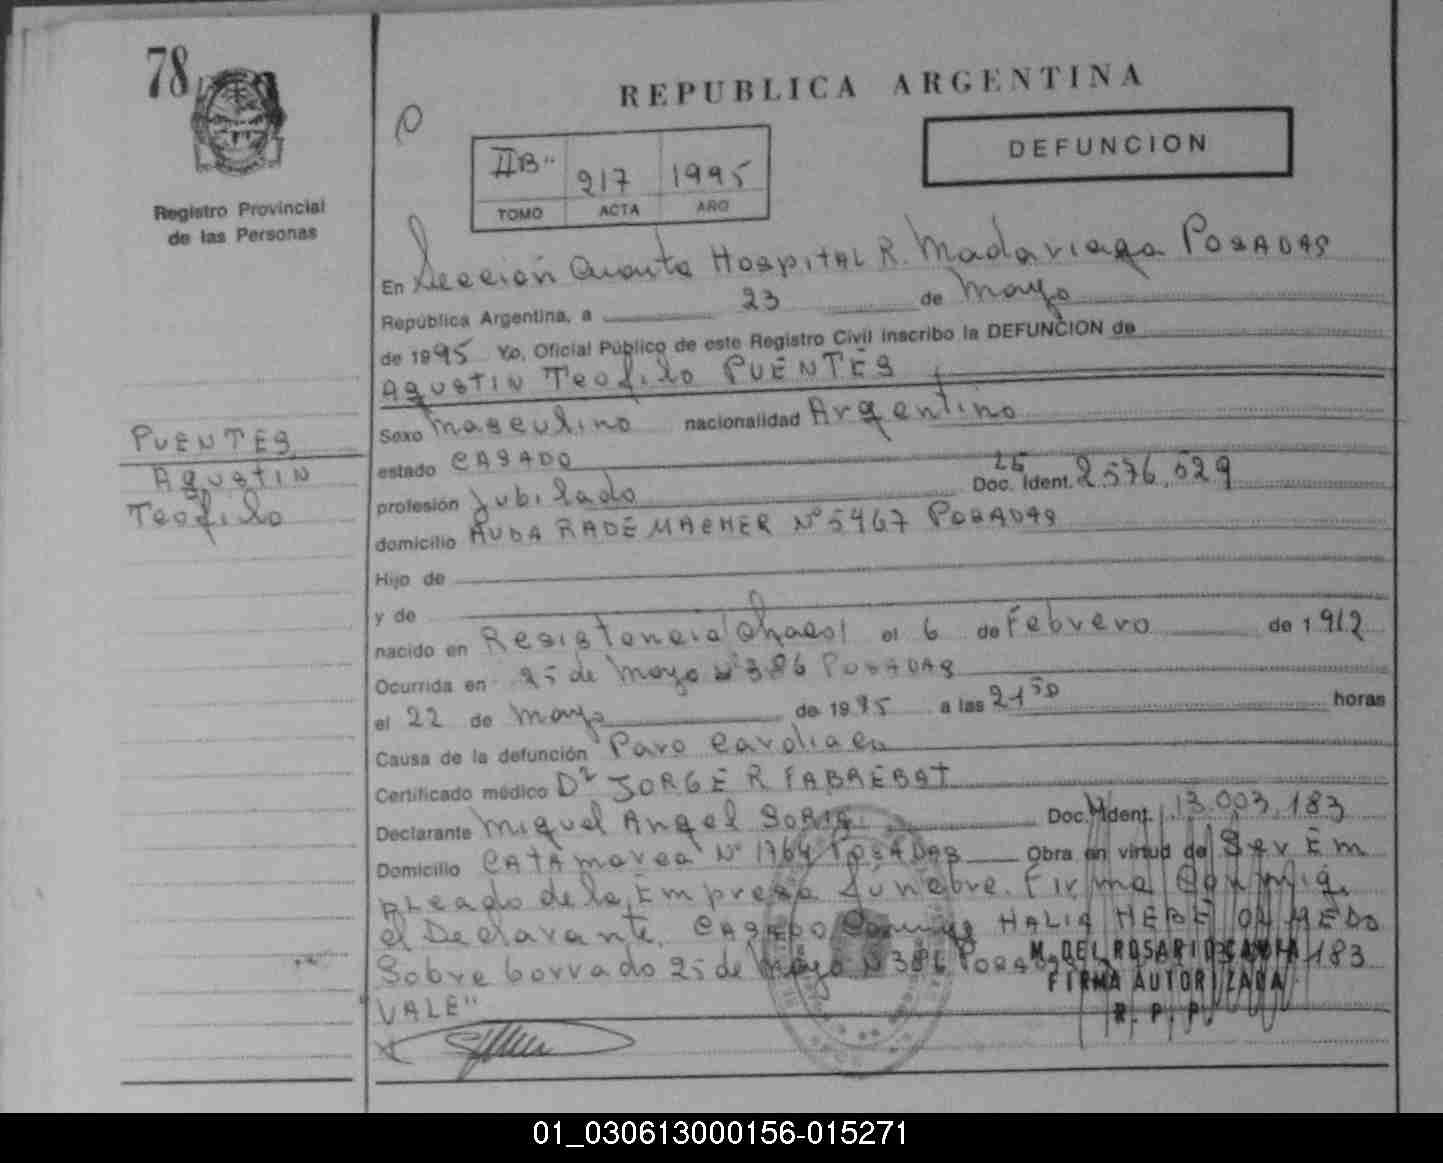 78
REPUBLICA ARGENTINA
DEFUNCION
IIB" 217 1995
TOMO ACTA AÑO
Registro Provincial
de las Personas
En Sección Cuarta Hospital R. Madariaga POSADAS
República Argentina, a 23 de Mayo
de 1995 Yo, Oficial Público de este Registro Civil inscribo la DEFUNCION de
AGUSTIN Teofilo PUENTES
Sexo Masculino nacionalidad Argentino
PUENTES
Agustin
Teofilo
estado CASADO
profesión Jubilado Doc. Ident. 2.576.529
domicilio AVDA RADEMACHER Nº 5467 POSADAS
Hijo de
y de
nacido en Resistencia Chaco el 6 de Febrero de 1912
Ocurrida en 25 de Mayo Nº 386 POSADAS
el 22 de Mayo de 1995 a las 21 50 horas
Causa de la defunción Paro Cardiaco
Certificado médico Dr JORGE R FABREBAT
Declarante Miguel Angel SORIA Doc. Ident. 13.003.183
Domicilio CATAMARCA Nº 1764 POSADAS Obra en virtud de Ser Em
pleado de la Empresa Funebre. Firma Conmigo
el Declarante. CASADO HALIA HEBE OLMEDO
Sobre borrado 25 de Mayo Nº 386 183
VALE"
M. DEL ROSARIO
FIRMA AUTORIZADA
R. P. P.
01_030613000156-015271